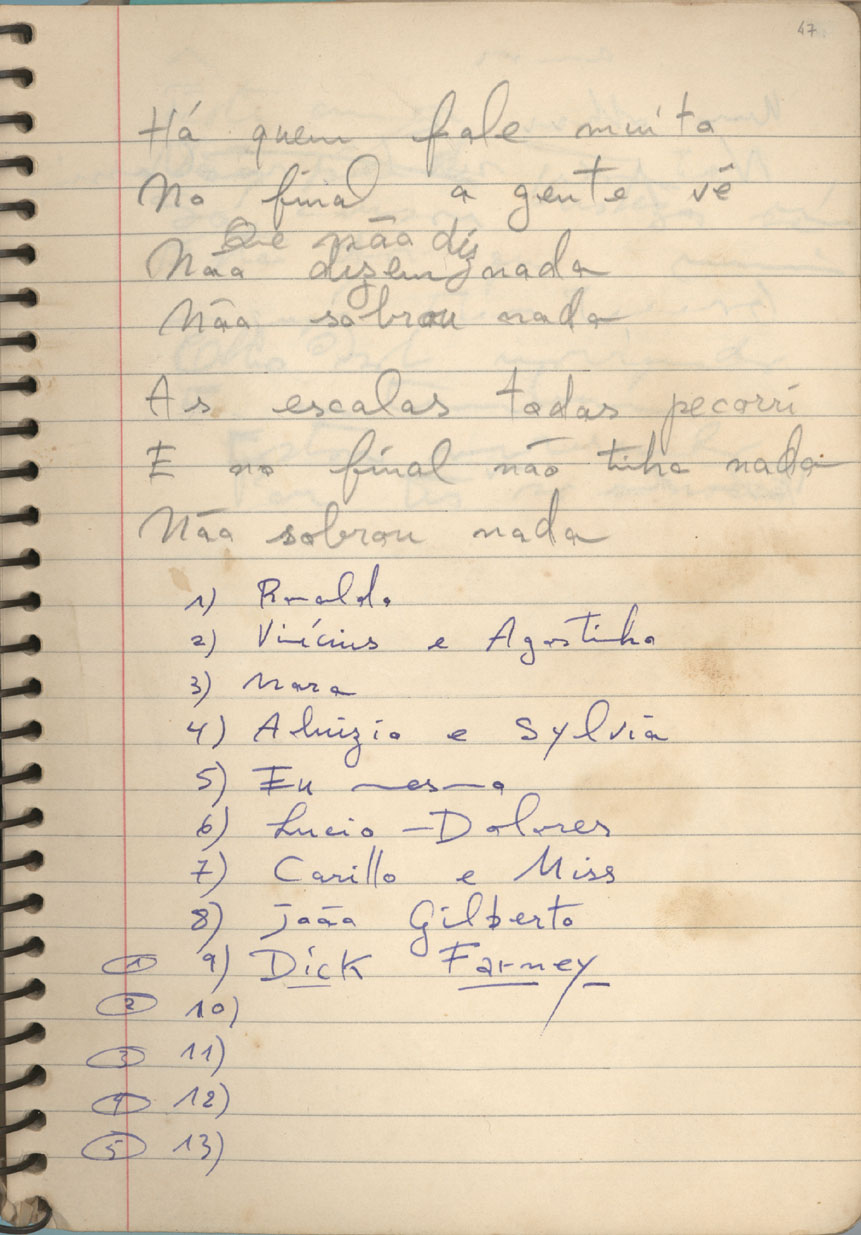 47
Há quem fale muito
No final a gente vê
Que não diz
Não dizem nada
Não sobrou nada
As escalas todas pecorri
E no final não tinha nada
Não sobrou nada
1) Ronaldo
2) Vinícius e Agostinho
3) Nara
4) Aluizio e Sylvia
5) Eu mesmo
6) Lucio - Dolores
7) Carillo e Miss
8) João Gilberto
1 9) Dick Farney
2 10)
3 11)
4 12)
5 13)